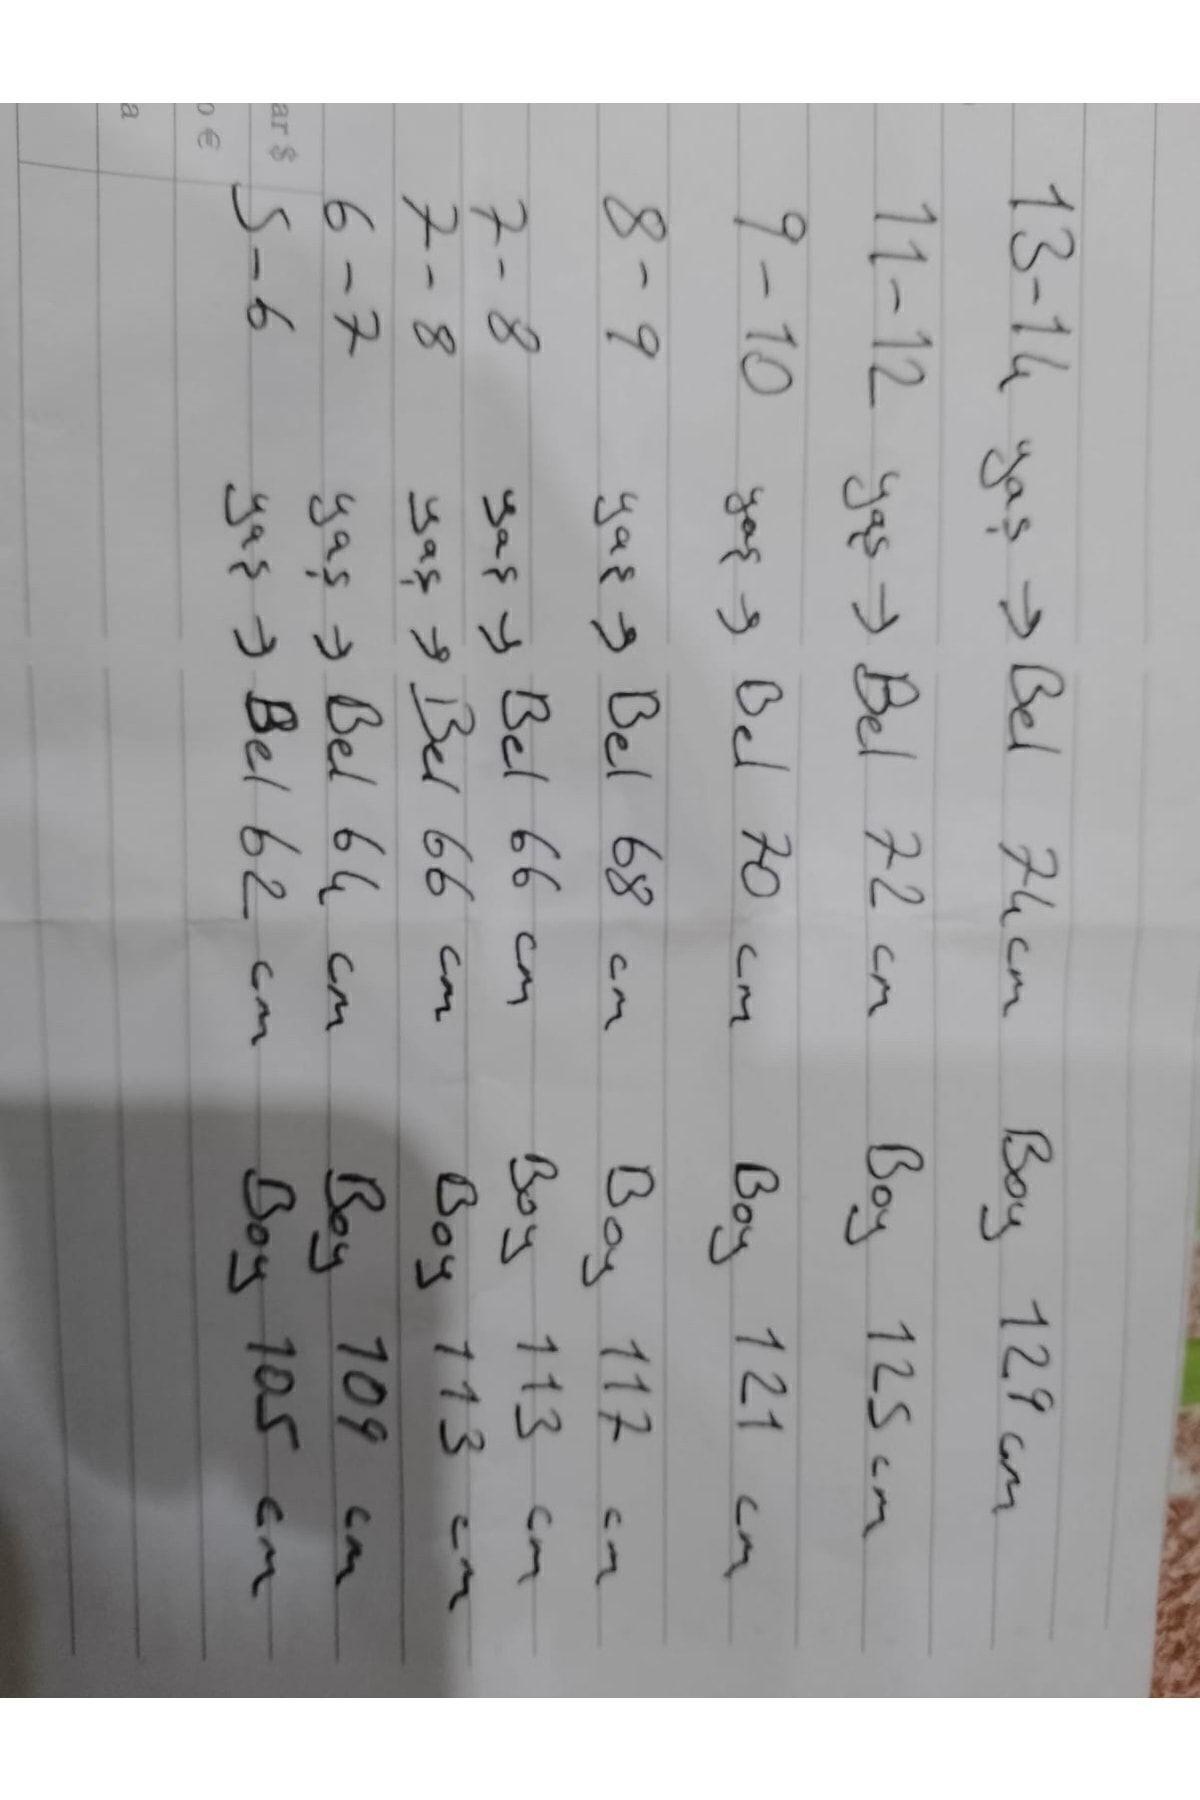 13-14 yaş → Bel 74cm Boy 129 cm
11-12 yaş → Bel 72 cm Boy 125 cm
9-10 yaş → Bel 70 cm Boy 121 cm
8-9 yaş → Bel 68 cm Boy 117 cm
7-8 yaş → Bel 66 cm Boy 113 cm
7-8 yaş → Bel 66 cm Boy 113 cm
6-7 yaş → Bel 64 cm Boy 109 cm
5-6 yaş → Bel 62 cm Boy 105 cm
ar $
o €
a